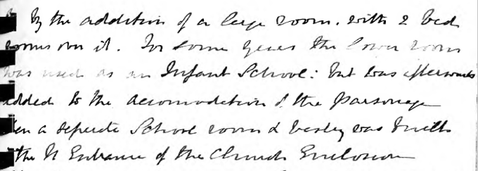 By the addition of a large room. with 2 bed
rooms over it. For some years the lower room
was used as an Infant School: but was afterwards
added to the accomodation of the Parsonage
when a seperate School room & Vestry was built
at the N Entrance of the Church Enclosure